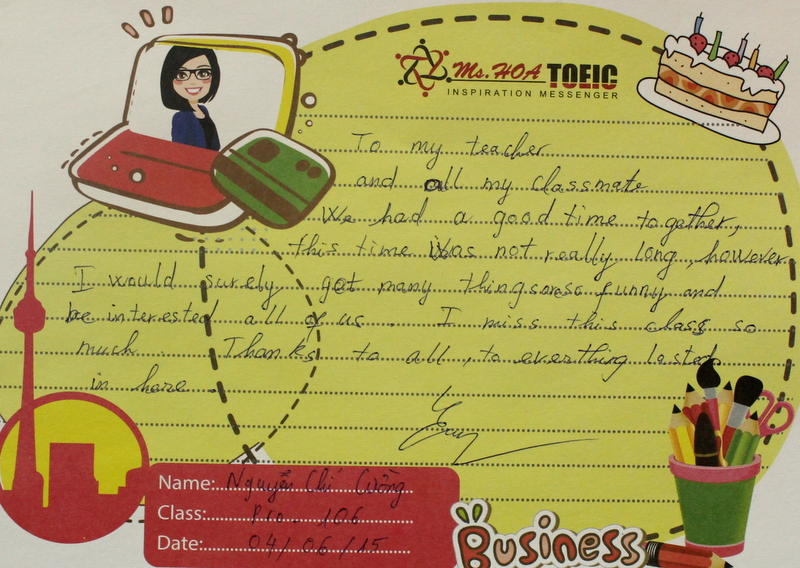 Ms. HOA TOEIC
INSPIRATION MESSENGER
To my teacher
and all my classmate
We had a good time together,
this time was not really long, however
I would surely get many things so funny and
be interested all of us. I miss this class so
much. Thanks to all, to everthing lasted
in here.
Name: Nguyễn Chí Cường
Class: Pro. 106
Date: 04/06/15
Business